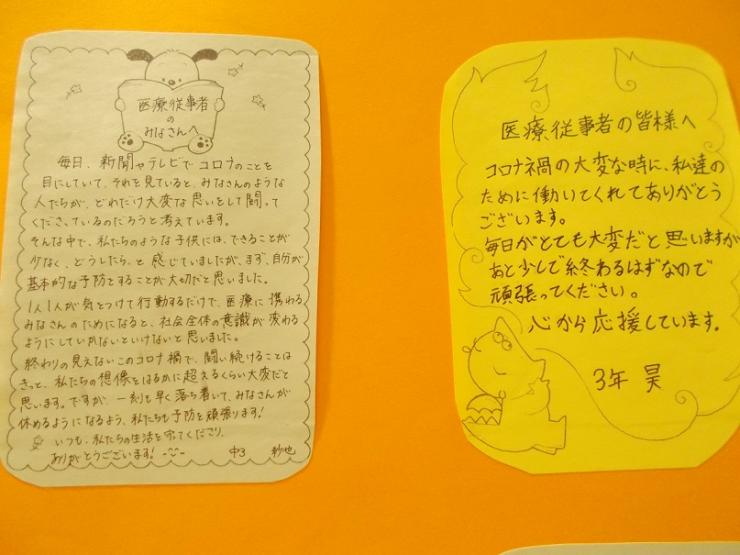 医療従事者
の
みなさんへ
毎日、新聞やテレビでコロナのことを
目にしていて、それを見ていると、みなさんのような
人たちが、どれだけ大変な思いをして闘って
くださっているのだろうと考えています。
そんな中で、私たちのような子供には、できることが
少なく、どうしたら、と感じていましたが、まず、自分が
基本的な予防をすることが大切だと思いました。
1人1人が気をつけて行動するだけで、医療に携わる
みなさんのためになると、社会全体の意識が変わる
ようにしていかないといけないと思いました。
終わりの見えないこのコロナ禍で、闘い続けることは
きっと、私たちの想像をはるかに超えるくらい大変だと
思います。ですが、一刻も早く落ち着いて、みなさんが
休めるようになるよう、私たちも予防を頑張ります!
いつも、私たちの生活を守ってくださり、
ありがとうございます!
中3 紗也
医療従事者の皆様へ
コロナ禍の大変な時に、私達の
ために働いてくれてありがとう
ございます。
毎日がとても大変だと思いますが
あと少しで終わるはずなので
頑張ってください。
心から応援しています。
3年 昊